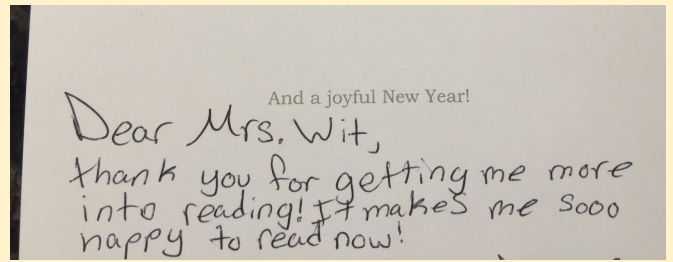 And a joyful New Year!
Dear Mrs. Wit,
thank you for getting me more
into reading! It makes me sooo
happy to read now!